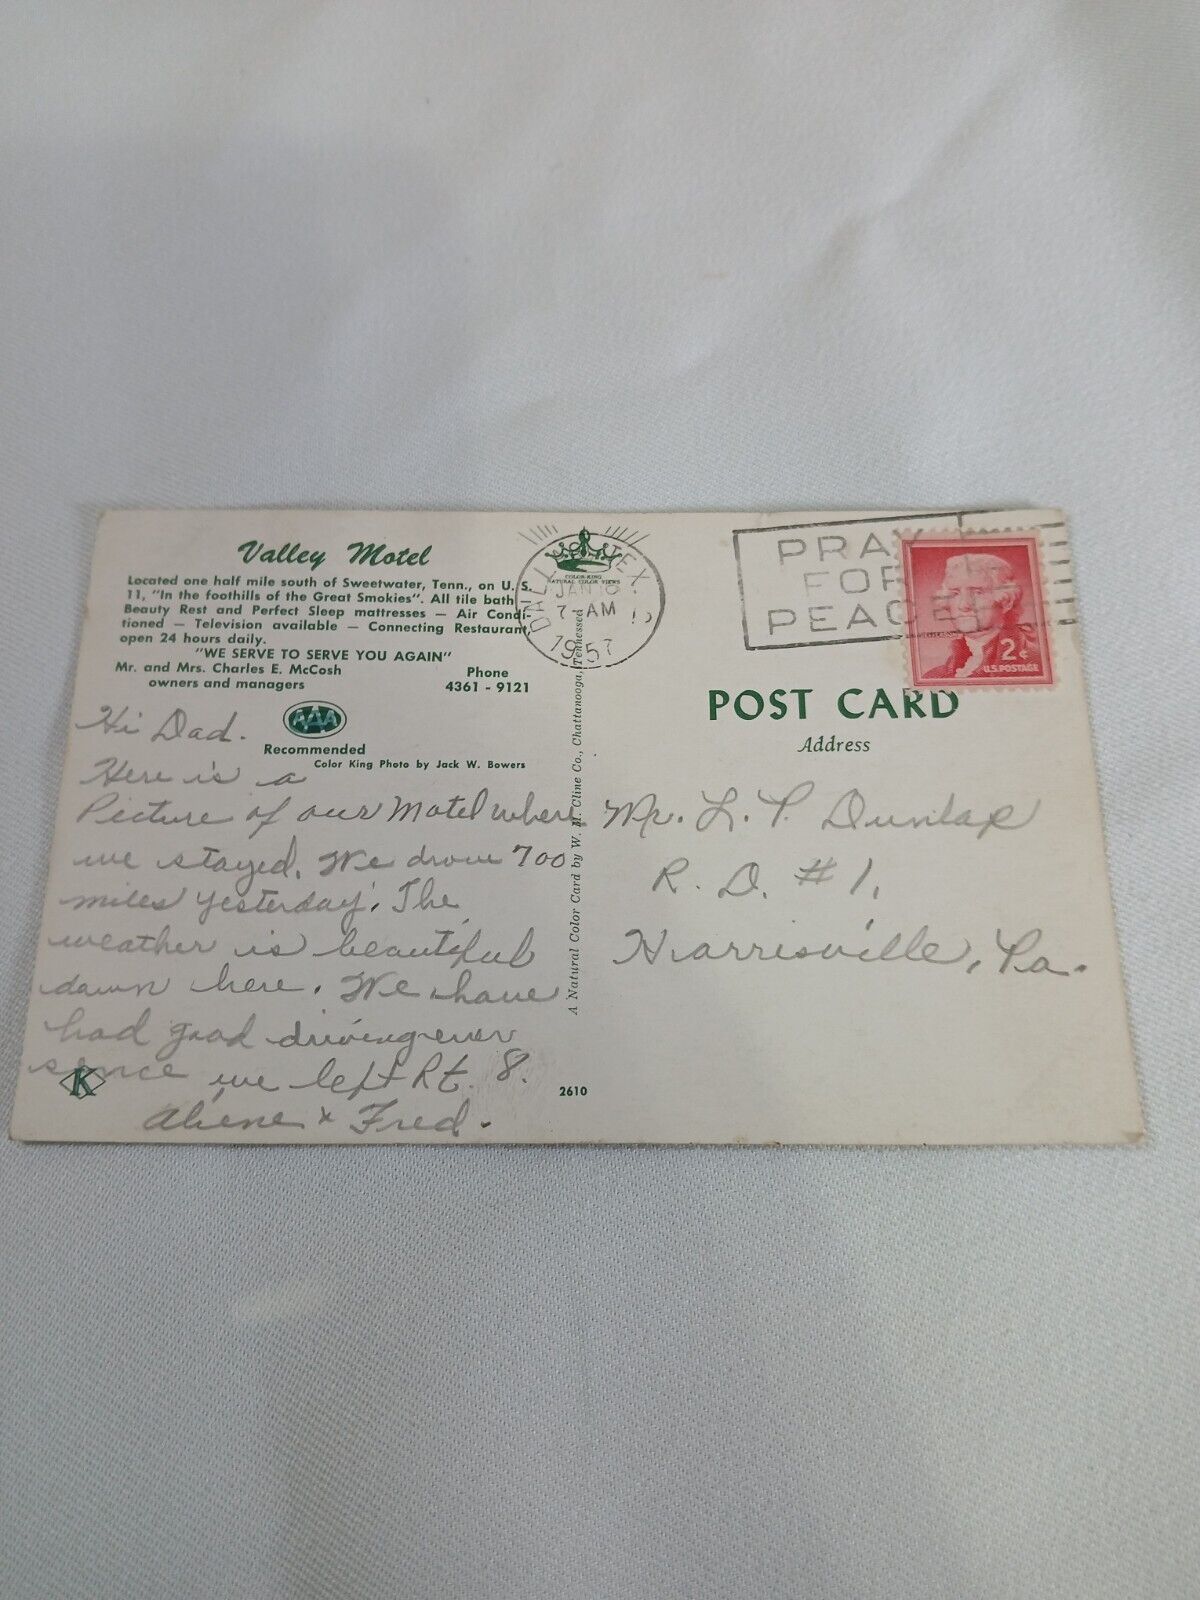 Valley Motel
Located one half mile south of Sweetwater, Tenn., on U. S.
11, "In the foothills of the Great Smokies". All tile bath —
Beauty Rest and Perfect Sleep mattresses — Air Condi-
tioned — Television available — Connecting Restaurant,
open 24 hours daily.
"WE SERVE TO SERVE YOU AGAIN"
Mr. and Mrs. Charles E. McCosh
owners and managers
Phone
4361 - 9121
AAA
Recommended
Color King Photo by Jack W. Bowers
Hi Dad.
Here is a
Picture of our Motel where
we stayed. We drove 700
miles yesterday. The
weather is beautiful
down here. We have
had good driving ever
since we left Rt. 8.
& Fred.
K
2610
A Natural Color Card by W. M. Cline Co., Chattanooga, Tennessee
COLOR-KING
NATURAL COLOR VIEWS
TEX.
JAN
7 AM
1957
PRAY
FOR
PEACE
2¢
U.S. POSTAGE
POST CARD
Address
Mr. L. P. Dunlap
R. D. #1.
Harrisville, Pa.